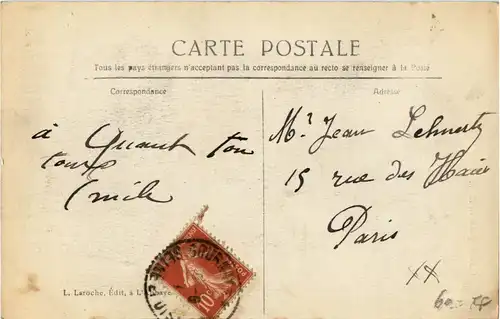 CARTE POSTALE
Tous les pays étrangers n'acceptant pas la correspondance au recto se renseigner à la Poste
Correspondance
Adresse
à Quant ton
tour
Emile
Mr Jean Lehnertz
15 rue des Haies
Paris
XX
L. Laroche, Édit, à
10